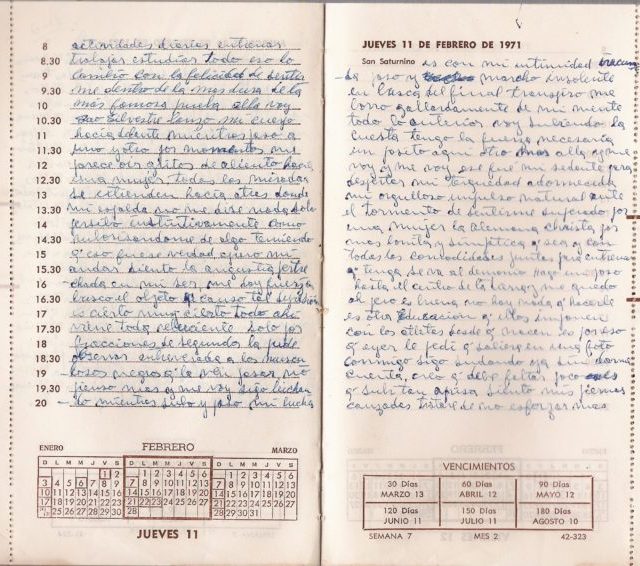 8 actividades diarias entrenar
8.30 trabajar estudiar todo eso lo
9 cambio con la felicidad de sentir
9.30 me dentro de la
10 más famosa prueba allá voy
10.30 Sao Silvestre lanzo mi cuerpo
11 hacia delante mientras paso a
11.30 uno y otro por momentos me
12 parece oir gritos de aliento hacia
12.30 una mujer, todas las miradas
13 se extienden hacia atras donde
13.30 mi espalda no me dice nada solo
14 instintivamente como
14.30 de algo temiendo
15 q' eso fuese verdad apuro mi
15.30 andar siento la angustia
16 en mi ser, me doy fuerza
16.30 busco el objeto causa tal
17 es cierto ningún todo ahi
viene toda solo por
18 fracciones de segundos la pude
18.30 observar
19 negros q' la ven pasar no
19.30 pienso mas y me voy sigo luchan
20 - do mientras subo y paso mi lucha
ENERO
FEBRERO
MARZO
D L M M J V S
1 2
3 4 5 6 7 8 9
10 11 12 13 14 15 16
17 18 19 20 21 22 23
25 26 27 28 29 30
D L M M J V S
1 2 3 4 5 6
7 8 9 10 11 12 13
14 15 16 17 18 19 20
21 22 23 24 25 26 27
28
D L M M J V S
1 2 3 4 5 6
7 8 9 10 11 12 13
14 15 16 17 18 19 20
21 22 23 24 25 26 27
28 29 30 31
JUEVES 11
JUEVES 11 DE FEBRERO DE 1971
San Saturnino es con mi intimidad
- da paso y marcho insolente
en busca del final transpiro me
gallardamente de mi mente
todo lo anterior voy subiendo la
cuesta tengo la fuerza necesaria
un pasito aqui otro mas alla y me
voy y me voy ese fue mi sedante para
despertar mi terquedad adormecida
mi orgulloso impulso natural ante
el tormento de sentirme superado por
una mujer la Alemana Christa por
mas bonita y simpatica q' sea y con
todas las comodidades juntas para entrenar
q' tenga se va al demonio hago un paso
hasta el centro de la y me quedo
ah pero es buena no hay moda q' hacerle
es otra Educacion q' ellos imponen
con los atletas desde q' nacen es por eso
q' ayer le pedi q' saliera en una foto
conmigo sigo andando ya sin darme
cuenta, creo q' debe faltar poco
q' subi tan aprisa siento mis piernas
cansadas trataré de no esforzar mas
VENCIMIENTOS
30 Días MARZO 13
60 Días ABRIL 12
90 Días MAYO 12
120 Días JUNIO 11
150 Días JULIO 11
180 Días AGOSTO 10
SEMANA 7 MES 2 42-323